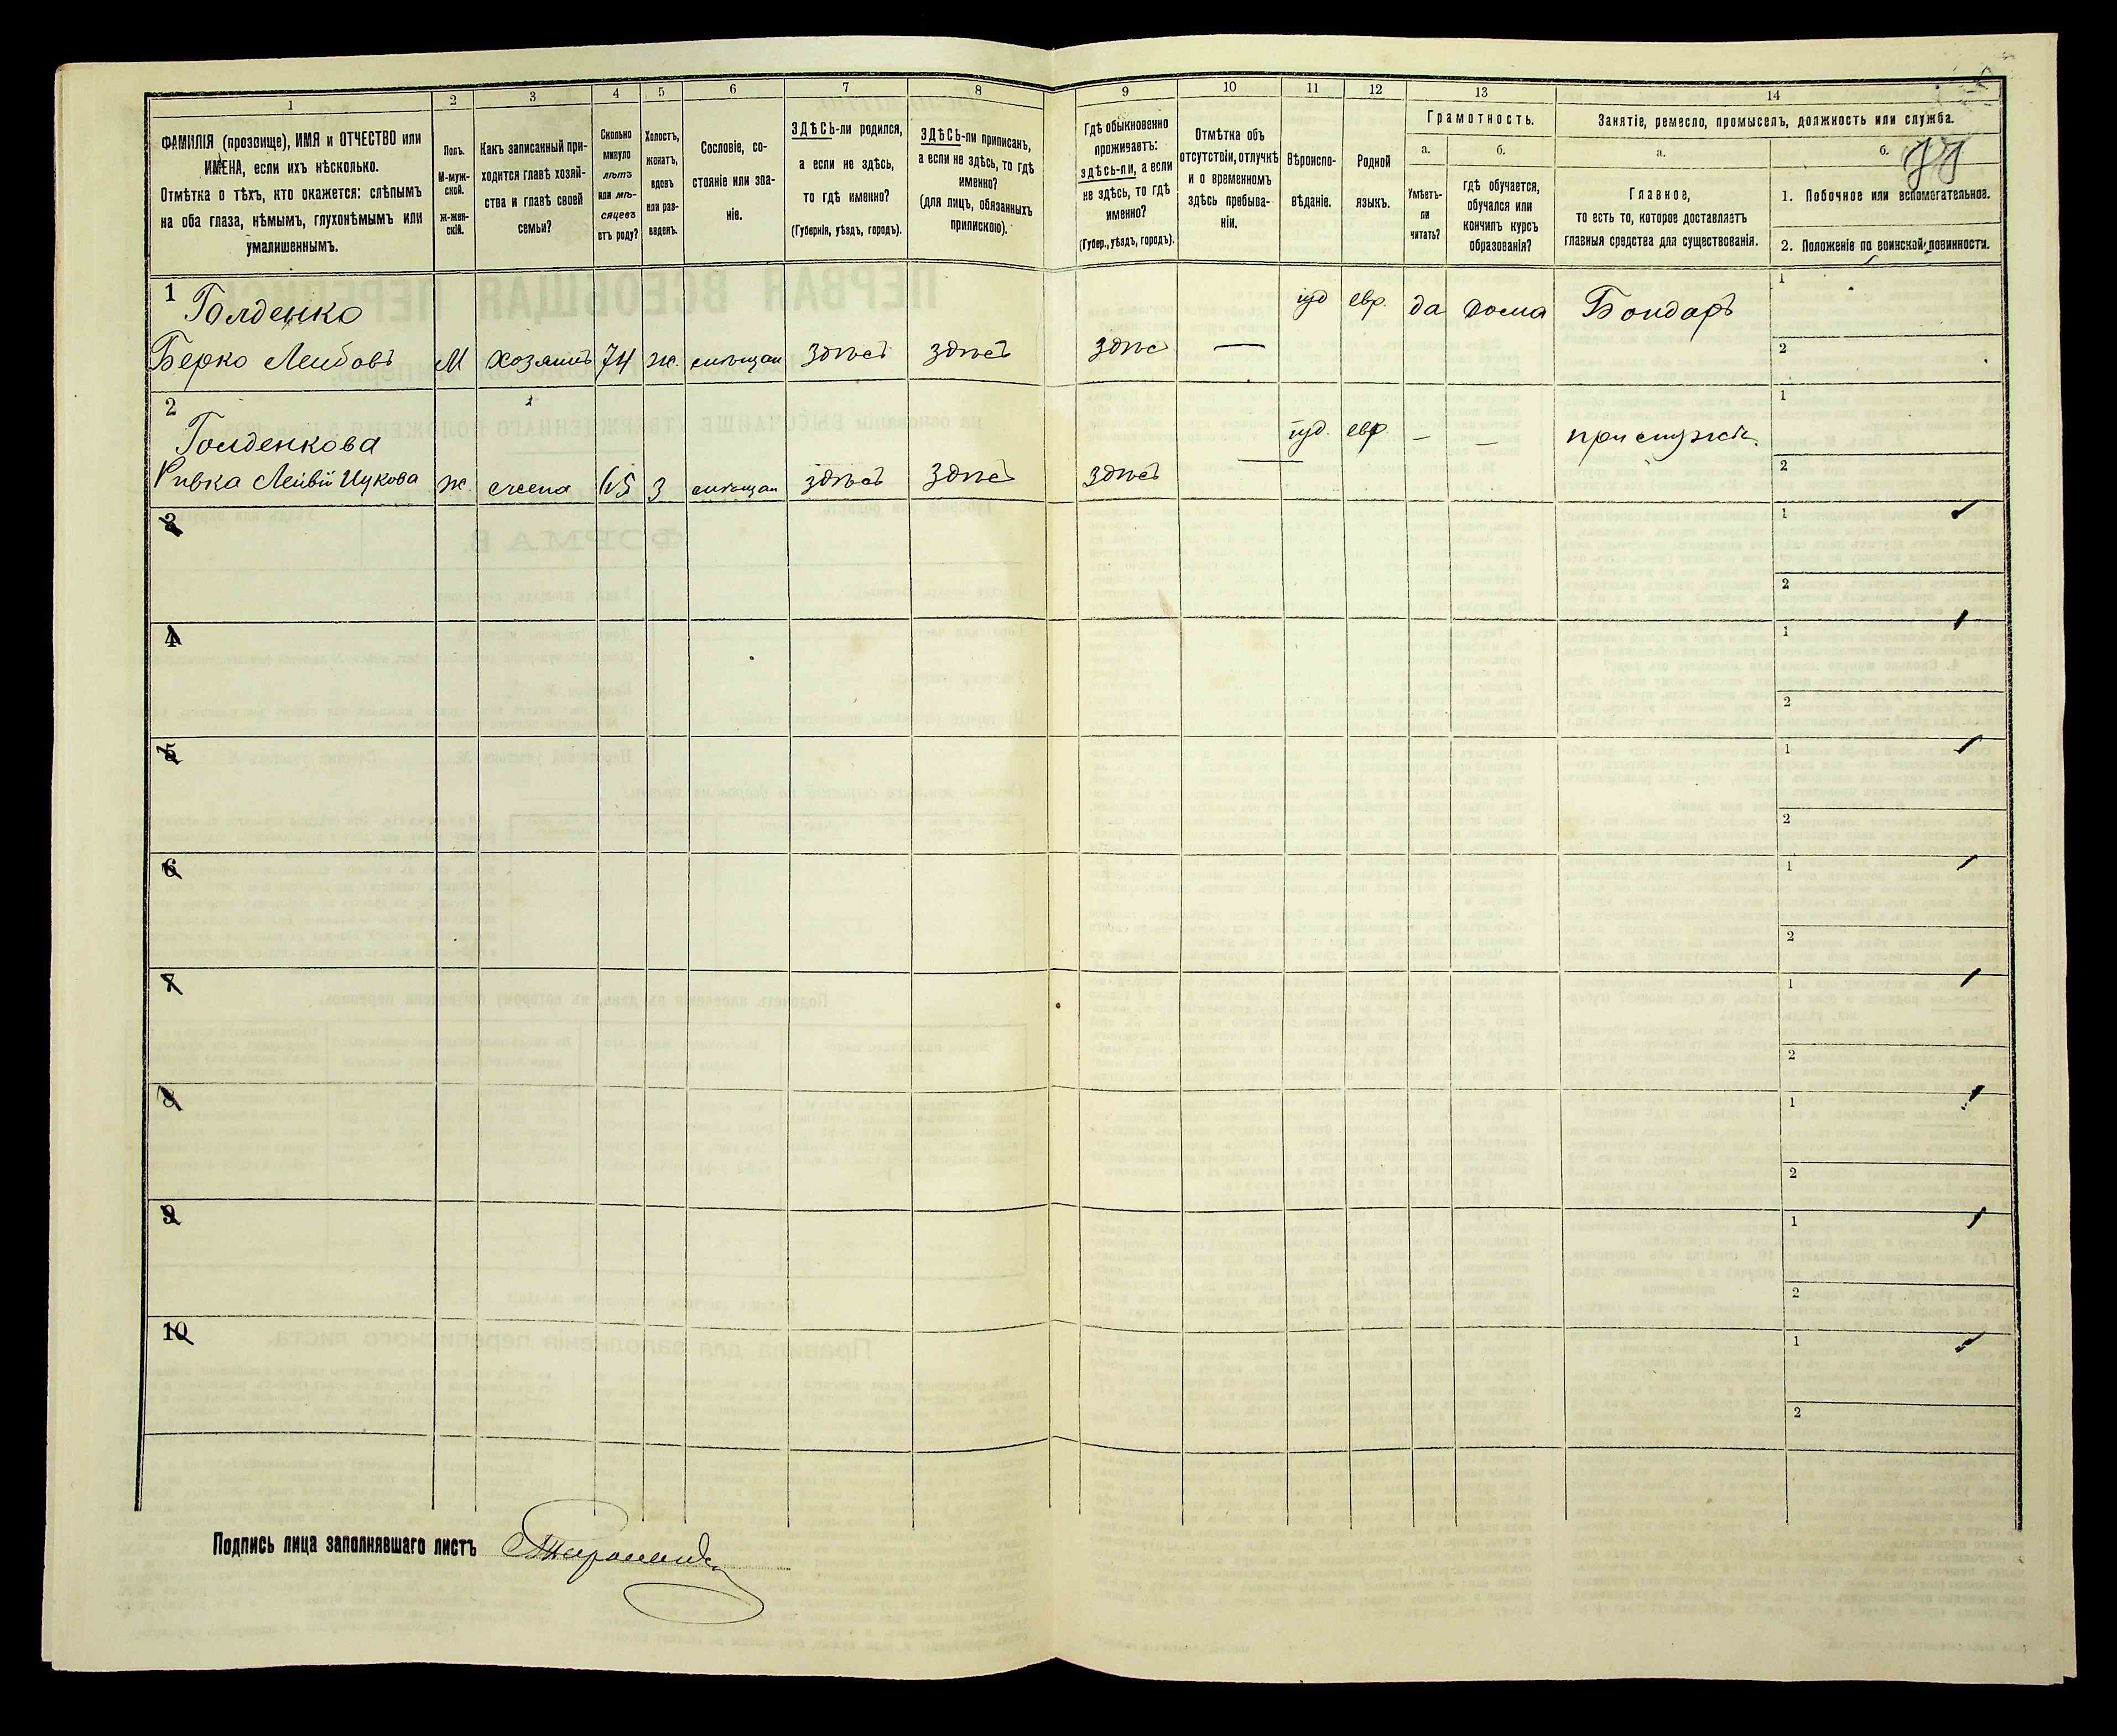 1 2 3 4 5 6 7 8 9 10 11 12 13 14
ФАМИЛІЯ (прозвище), ИМЯ и ОТЧЕСТВО или
ИМЕНА, если ихъ нѣсколько.
Отмѣтка о тѣхъ, кто окажется: слѣпымъ
на оба глаза, нѣмымъ, глухонѣмымъ или
умалишеннымъ.
Полъ.
М-муж-
ской.
ж-жен-
скій.
Какъ записанный при-
ходится главѣ хозяй-
ства и главѣ своей
семьи?
Сколько
минуло
лѣтъ
или мѣ-
сяцевъ
отъ роду?
Холостъ,
женатъ,
вдовъ
или раз-
веденъ.
Сословіе, со-
стояніе или зва-
ніе.
ЗДѢСЬ-ли родился,
а если не здѣсь,
то гдѣ именно?
(Губернія, уѣздъ, городъ).
ЗДѢСЬ-ли приписанъ,
а если не здѣсь, то гдѣ
именно?
(для лицъ, обязанныхъ
припискою).
Гдѣ обыкновенно
проживаетъ:
здѣсь-ли, а если
не здѣсь, то гдѣ
именно?
(Губер., уѣздъ, городъ).
Отмѣтка объ
отсутствіи, отлучкѣ
и о временномъ
здѣсь пребыва-
ніи.
Вѣроиспо-
вѣданіе.
Родной
языкъ.
Грамотность.
а.
Умѣетъ-
ли
читать?
б.
гдѣ обучается,
обучался или
кончилъ курсъ
образованія?
Занятіе, ремесло, промыселъ, должность или служба.
а.
Главное,
то есть то, которое доставляетъ
главныя средства для существованія.
б.
1. Побочное или вспомогательное.
2. Положеніе по воинской повинности.
1 Голденко иуд евр. да дома Бондарь 1
Берко Лейбовъ М хозяинъ 74 ж. мѣщан здѣсь здѣсь здѣс — 2
2 1
Голденкова иуд. евр. — —
ж. жена 65 З мѣщан здѣсь здѣсь здѣсь — 2
3 1
2
4 1
2
5 1
2
6 1
2
7 1
2
8 1
2
9 1
2
10 1
2
Подпись лица заполнявшаго листъ